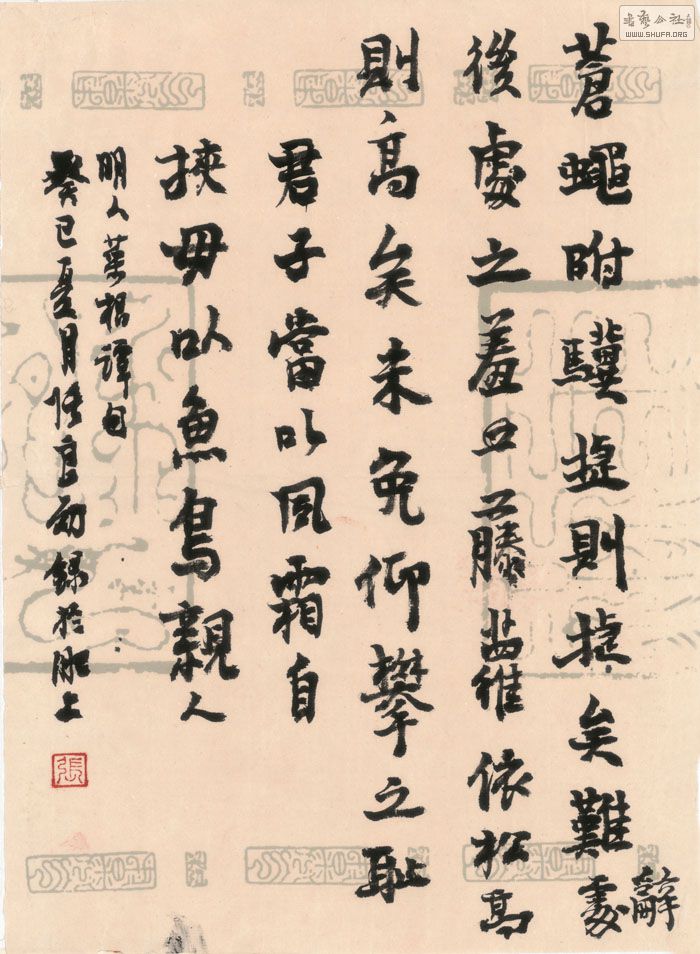 蒼蠅附驥捷則捷矣難處
辭
後處之羞藤蘿依松高
則高矣未免仰攀之耻
君子當以風霜自
挾毋以魚鳥親人
明人菜根譚句
癸巳夏月張良勋錄於肥上
張
書藝公社
WWW.SHUFA.ORG